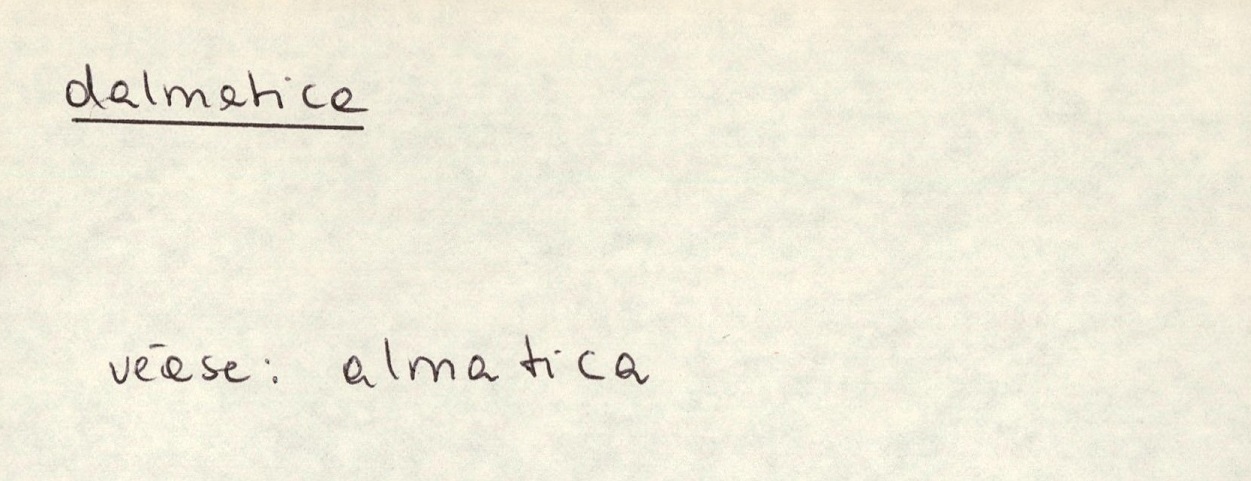 dalmatica
véase: almatica